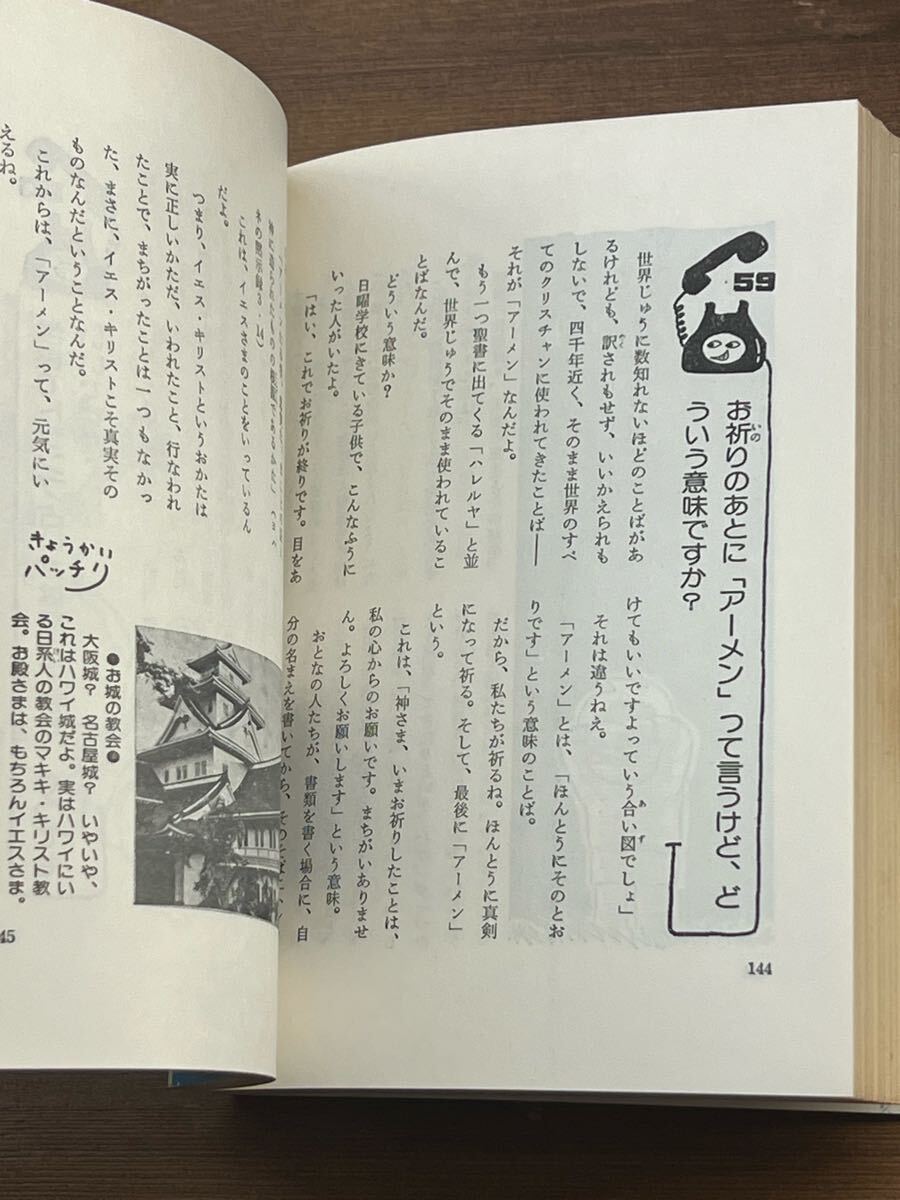 59
お祈りのあとに「アーメン」って言うけど、ど
いの
ういう意味ですか？
世界じゅうに数知れないほどのことばがあ
るけれども、訳されもせず、いいかえられも
やく
しないで、四千年近く、そのまま世界のすべ
てのクリスチャンに使われてきたことば――
それが「アーメン」なんだよ。
もう一つ聖書に出てくる「ハレルヤ」と並
んで、世界じゅうでそのまま使われているこ
とばなんだ。
どういう意味か？
日曜学校にきている子供で、こんなふうに
いった人がいたよ。
「はい、これでお祈りが終りです。目をあ
けてもいいですよっていう合い図でしょ」
あ
ず
それは違うねえ。
「アーメン」とは、「ほんとうにそのとお
りです」という意味のことば。
だから、私たちが祈るね。ほんとうに真剣
になって祈る。そして、最後に「アーメン」
という。
これは、「神さま、いまお祈りしたことは、
私の心からのお願いです。まちがいありませ
ん。よろしくお願いします」という意味。
おとなの人たちが、書類を書く場合に、自
分の名まえを書いてから、その
144
ネの黙示録3・14）
これは、イエスさまのことをいっているん
だよ。
つまり、イエス・キリストというおかたは
実に正しいかただ、いわれたこと、行なわれ
たことで、まちがったことは一つもなかっ
た、まさに、イエス・キリストこそ真実その
ものなんだということなんだ。
これからは、「アーメン」って、元気にい
えるね。
きょうかい
パッチリ
●お城の教会●
大阪城？　名古屋城？　いやいや、
これはハワイ城だよ。実はハワイにい
る日系人の教会のマキキ・キリスト教
会。お殿さまは、もちろんイエスさま。
45